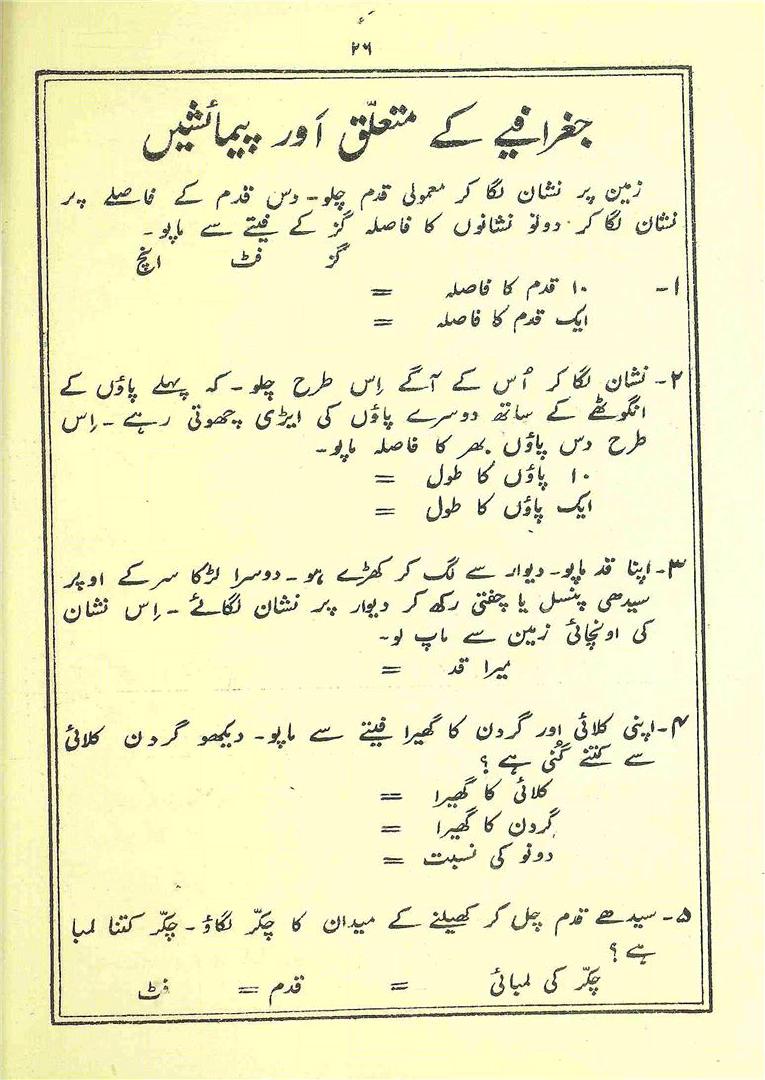 ۲۶
جغرافیے کے متعلّق اَور پیمائشیں
زمین پر نشان لگا کر معمولی قدم چلو۔ دس قدم کے فاصلے پر
نشان لگا کر دونو نشانوں کا فاصلہ گز کے فیتے سے ماپو۔
گز فٹ انچ
۱۔ ۱۰ قدم کا فاصلہ =
ایک قدم کا فاصلہ =
۲۔ نشان لگا کر اُس کے آگے اِس طرح چلو۔ کہ پہلے پاؤں کے
انگوٹھے کے ساتھ دوسرے پاؤں کی ایڑی چھوتی رہے۔ اِس
طرح دس پاؤں بھر کا فاصلہ ماپو۔
۱۰ پاؤں کا طول =
ایک پاؤں کا طول =
۳۔ اپنا قد ماپو۔ دیوار سے لگ کر کھڑے ہو۔ دوسرا لڑکا سر کے اوپر
سیدھی پنسل یا چفتی رکھ کر دیوار پر نشان لگائے۔ اِس نشان
کی اونچائی زمین سے ماپ لو۔
میرا قد =
۴۔ اپنی کلائی اور گردن کا گھیرا فیتے سے ماپو۔ دیکھو گردن کلائی
سے کتنے گُنی ہے؟
کلائی کا گھیرا =
گردن کا گھیرا =
دونو کی نسبت =
۵۔ سیدھے قدم چل کر کھیلنے کے میدان کا چکّر لگاؤ۔ چکّر کتنا لمبا
ہے؟
چکّر کی لمبائی = قدم = فٹ